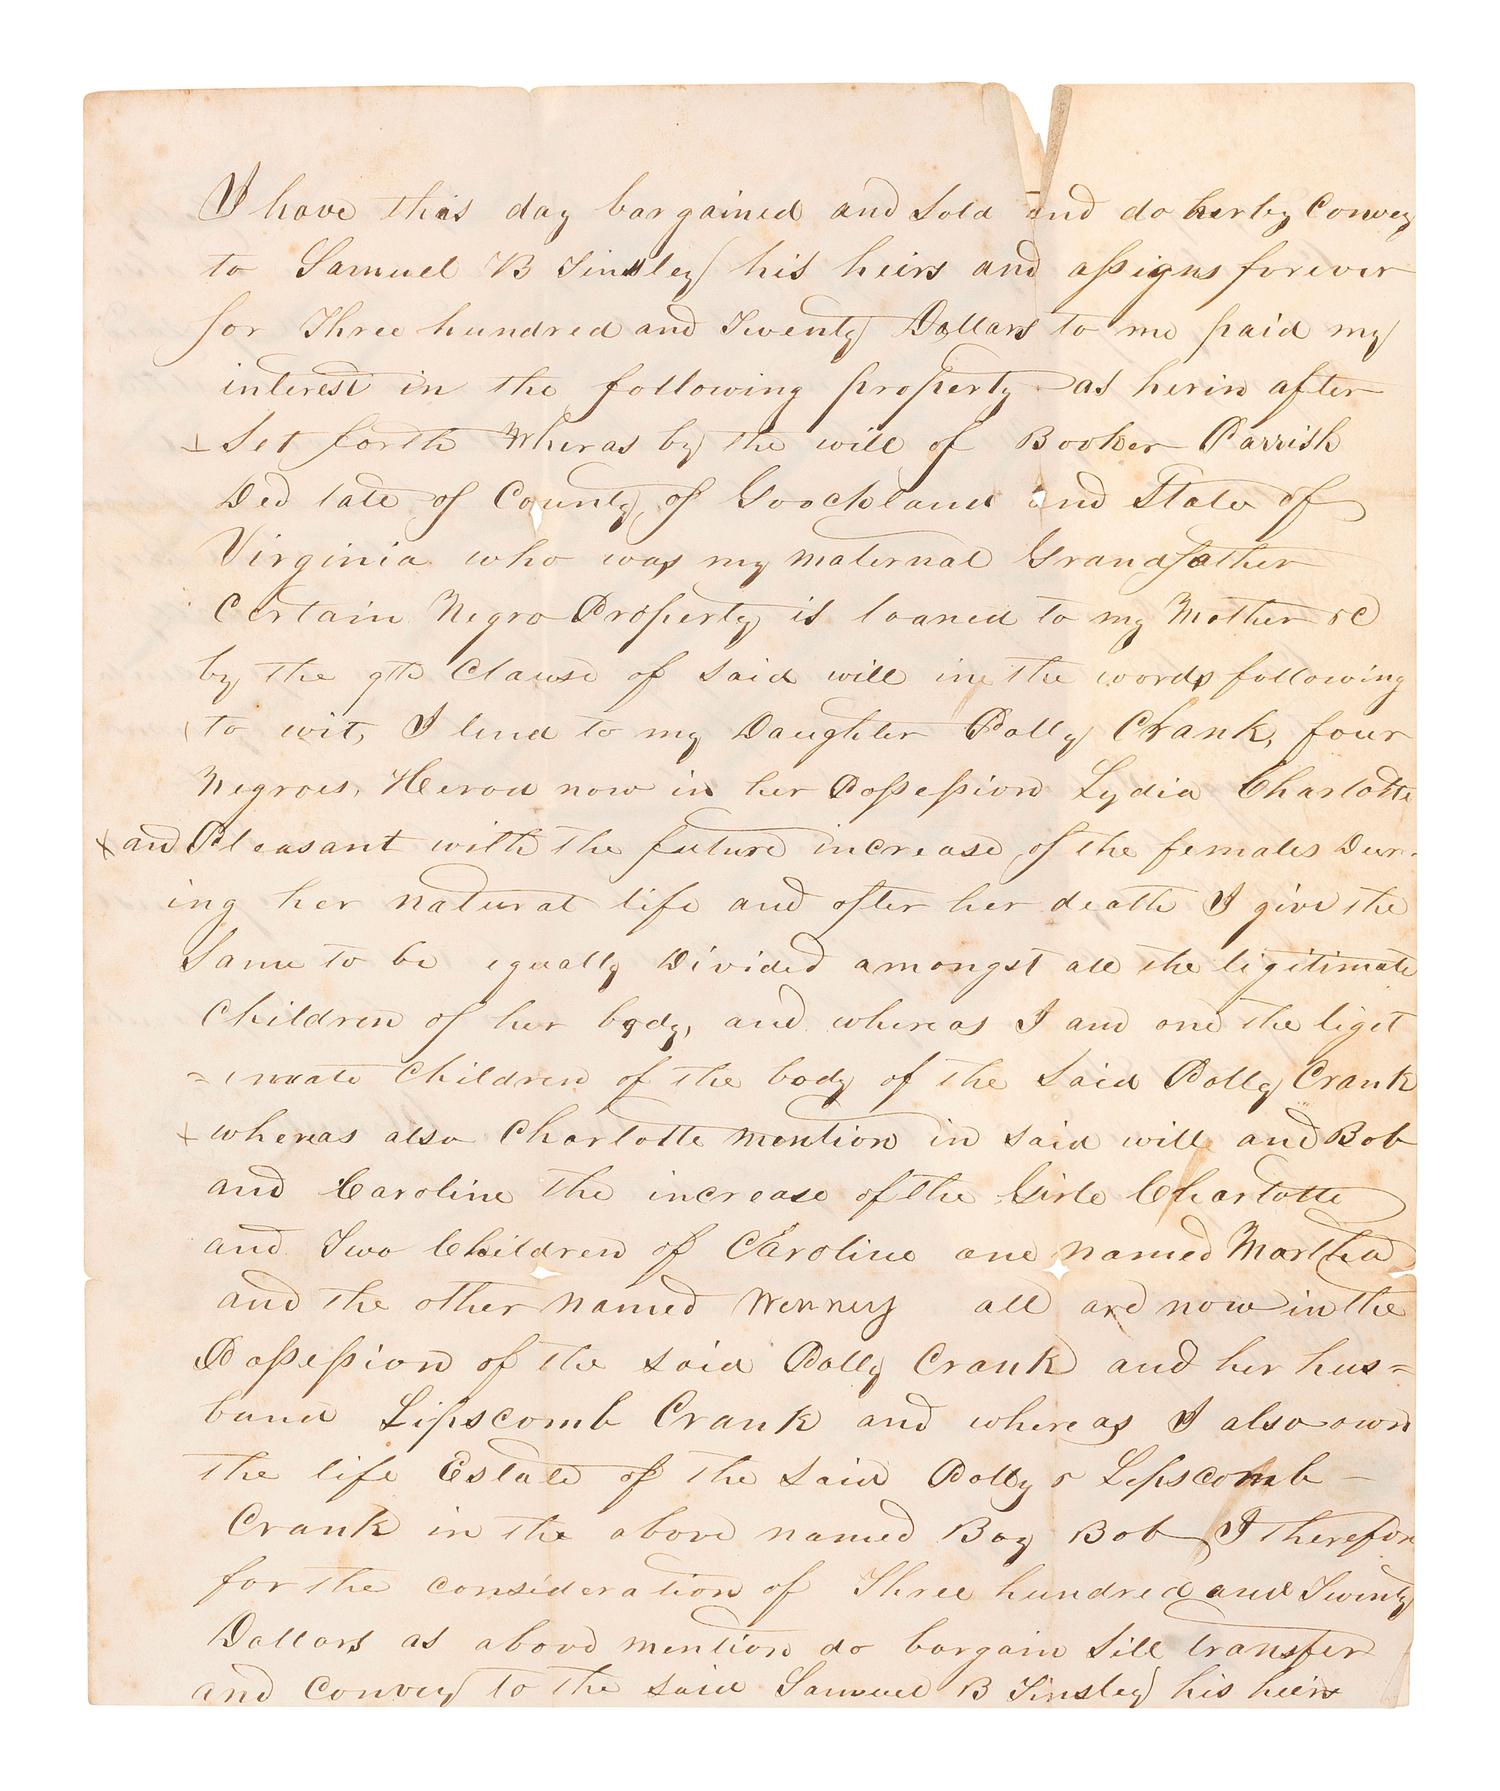 I have this day bargained and Sold and do herby Convey
to Samuel B Tinsley his heirs and assigns forever
for Three hundred and Twenty Dollars to me paid my
interest in the following property as herin after
Set forth Wheras by the will of Booker Parrish
Ded late of County of Goochland and State of
Virginia who was my maternal Grandfather
Certain Negro Property is loaned to my Mother &C
by the 9th Clause of Said will in the words following
to wit, I lend to my Daughter Polly Crank, four
Negroes, Herod now in her Possession Lydia Charlotte
and Pleasant with the future increase of the females Dur-
ing her natural life and after her death I give the
Same to be equally Divided amongst all the ligitimate
Children of her body, and whereas I am one the ligit
=imate Children of the body of the Said Polly Crank
whereas also Charlotte mention in said will and Bob
and Caroline the increase of the Girle Charlotte
and Two Children of Caroline one named Martha
and the other named Wenney all are now in the
Possession of the said Polly Crank and her hus=
band Lipscomb Crank and whereas I also own
the life Estate of the Said Polly & Lipscomb
Crank in the above named Boy Bob I therefor
for the consideration of Three hundred and Twenty
Dollars as above mention do bargain Sill transfer
and Convey to the said Samuel B Tinsley his heirs